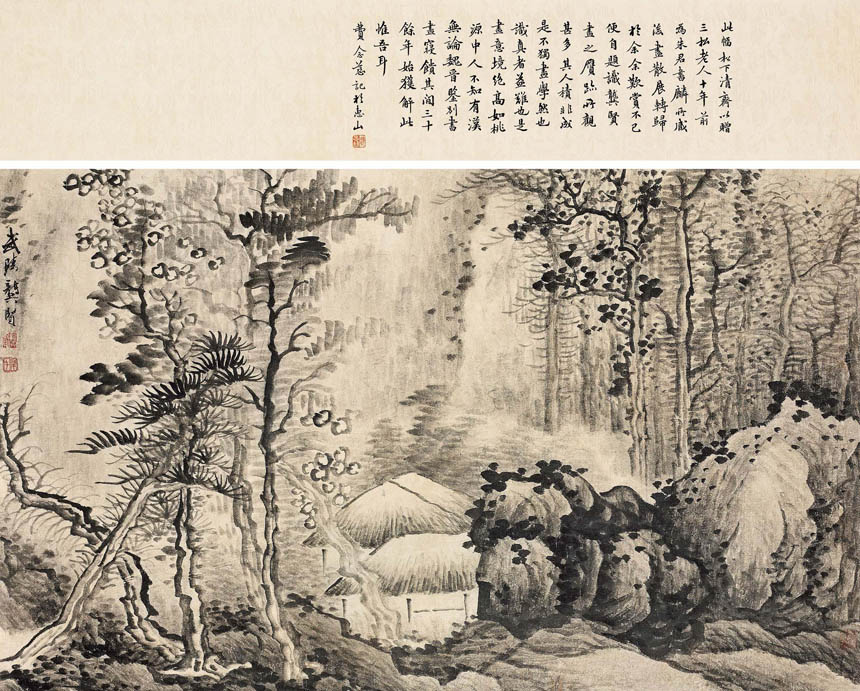 此幅松下清齋以贈
三松老人十年前
為朱君書麟所藏
後畫散展轉歸
於余余歎賞不已
便自題識龔賢
畫之贋跡所觀
甚多其人積非成
是不獨畫學然也
識真者益難也是
畫意境絕高如桃
源中人不知有漢
無論魏晉鑒別書
畫寢饋其間三十
餘年始獲解此
惟吾耳
費念慈記於惠山
武陵龔賢